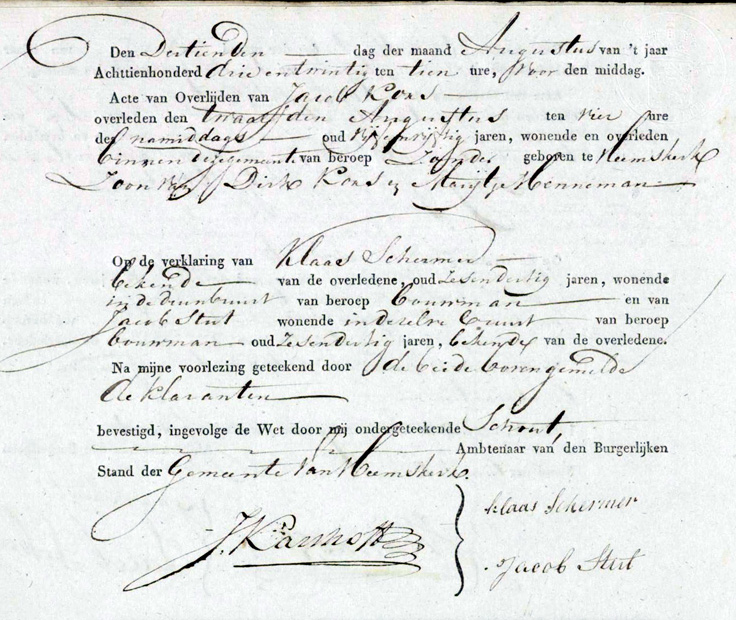 Den Dertienden dag der maand Augustus van 't jaar
Achttienhonderd drie entwintig ten tien ure, Voor den middag.
Acte van Overlijden van Jacob Koas
overleden den twaalfden Augustus ten vier ure
des namiddags oud jaren, wonende en overleden
binnen dezegemeente van beroep Zonder geboren te Heemskerk
Zoon van Dirk Koas & Marijtje Henneman
Op de verklaring van Klaas Schermer
bekende van de overledene, oud zesendertig jaren, wonende
in de duinbuurt van beroep bouwman en van
Jacob Stut wonende indezelve buurt van beroep
bouwman oud zesendertig jaren, bekende van de overledene.
Na mijne voorlezing geteekend door de beide bovengemelde
deklaranten
bevestigd, ingevolge de Wet door mij ondergeteekende Schout,
Ambtenaar van den Burgerlijken
Stand der Gemeente van Heemskerk.
klaas Schermer
Jacob Stut